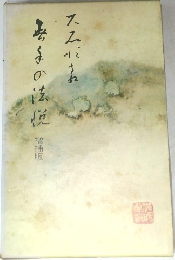 大石順教
無手の法悦
増補版